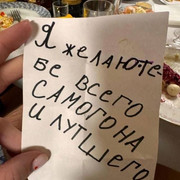 Я ЖЕЛАЮ ТЕ-
БЕ ВСЕГО
САМОГОНА
И ЛУТШЕГО